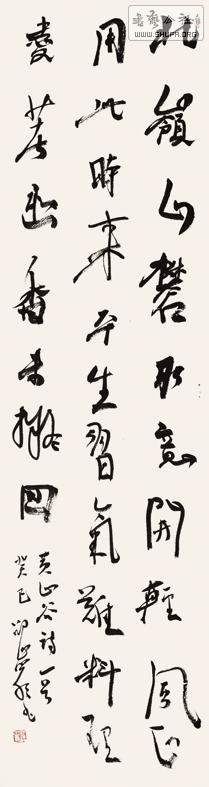 WWW.SHUFA.ORG
北嶺山礬取意開輕風正
用此時來平生習氣難料理
愛著幽香未擬回
黃山谷詩一首
癸巳